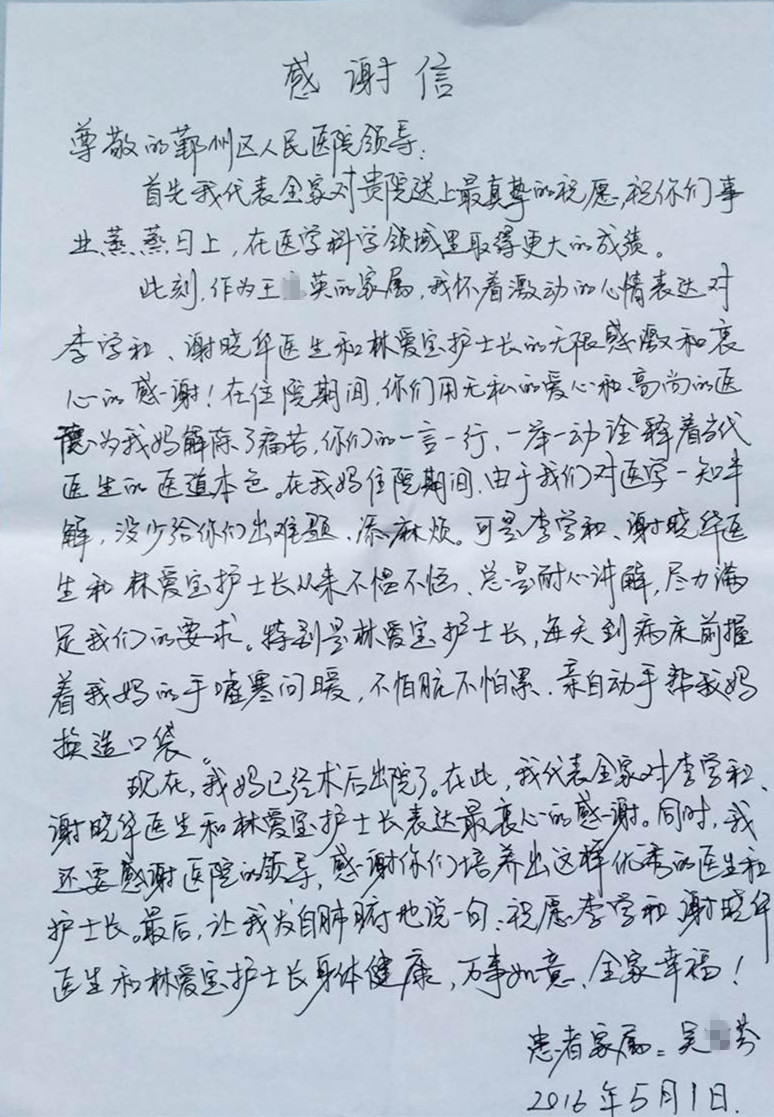 感谢信
尊敬的鄞州区人民医院领导:
首先我代表全家对贵院送上最真挚的祝愿,祝你们事
业蒸蒸日上,在医学科学领域里取得更大的成绩。
此刻,作为王英的家属,我怀着激动的心情表达对
李学和、谢晓华医生和林爱宝护士长的无限感激和衷
心的感谢!在住院期间,你们用无私的爱心和高尚的医
德为我妈解除了痛苦,你们的一言一行,一举一动诠释着当代
医生的医道本色。在我妈住院期间,由于我们对医学一知半
解,没少给你们出难题、添麻烦。可是李学和、谢晓华医
生和林爱宝护士长从来不愠不恼、总是耐心讲解,尽力满
足我们的要求。特别是林爱宝护士长,每天到病床前握
着我妈的手嘘寒问暖,不怕脏不怕累,亲自动手帮我妈
换造口袋。
现在,我妈已经术后出院了。在此,我代表全家对李学和、
谢晓华医生和林爱宝护士长表达最衷心的感谢。同时,我
还要感谢医院的领导,感谢你们培养出这样优秀的医生和
护士长。最后,让我发自肺腑地说一句:祝愿李学和谢晓华
医生和林爱宝护士长身体健康,万事如意、全家幸福!
患者家属:吴芬
2016年5月1日